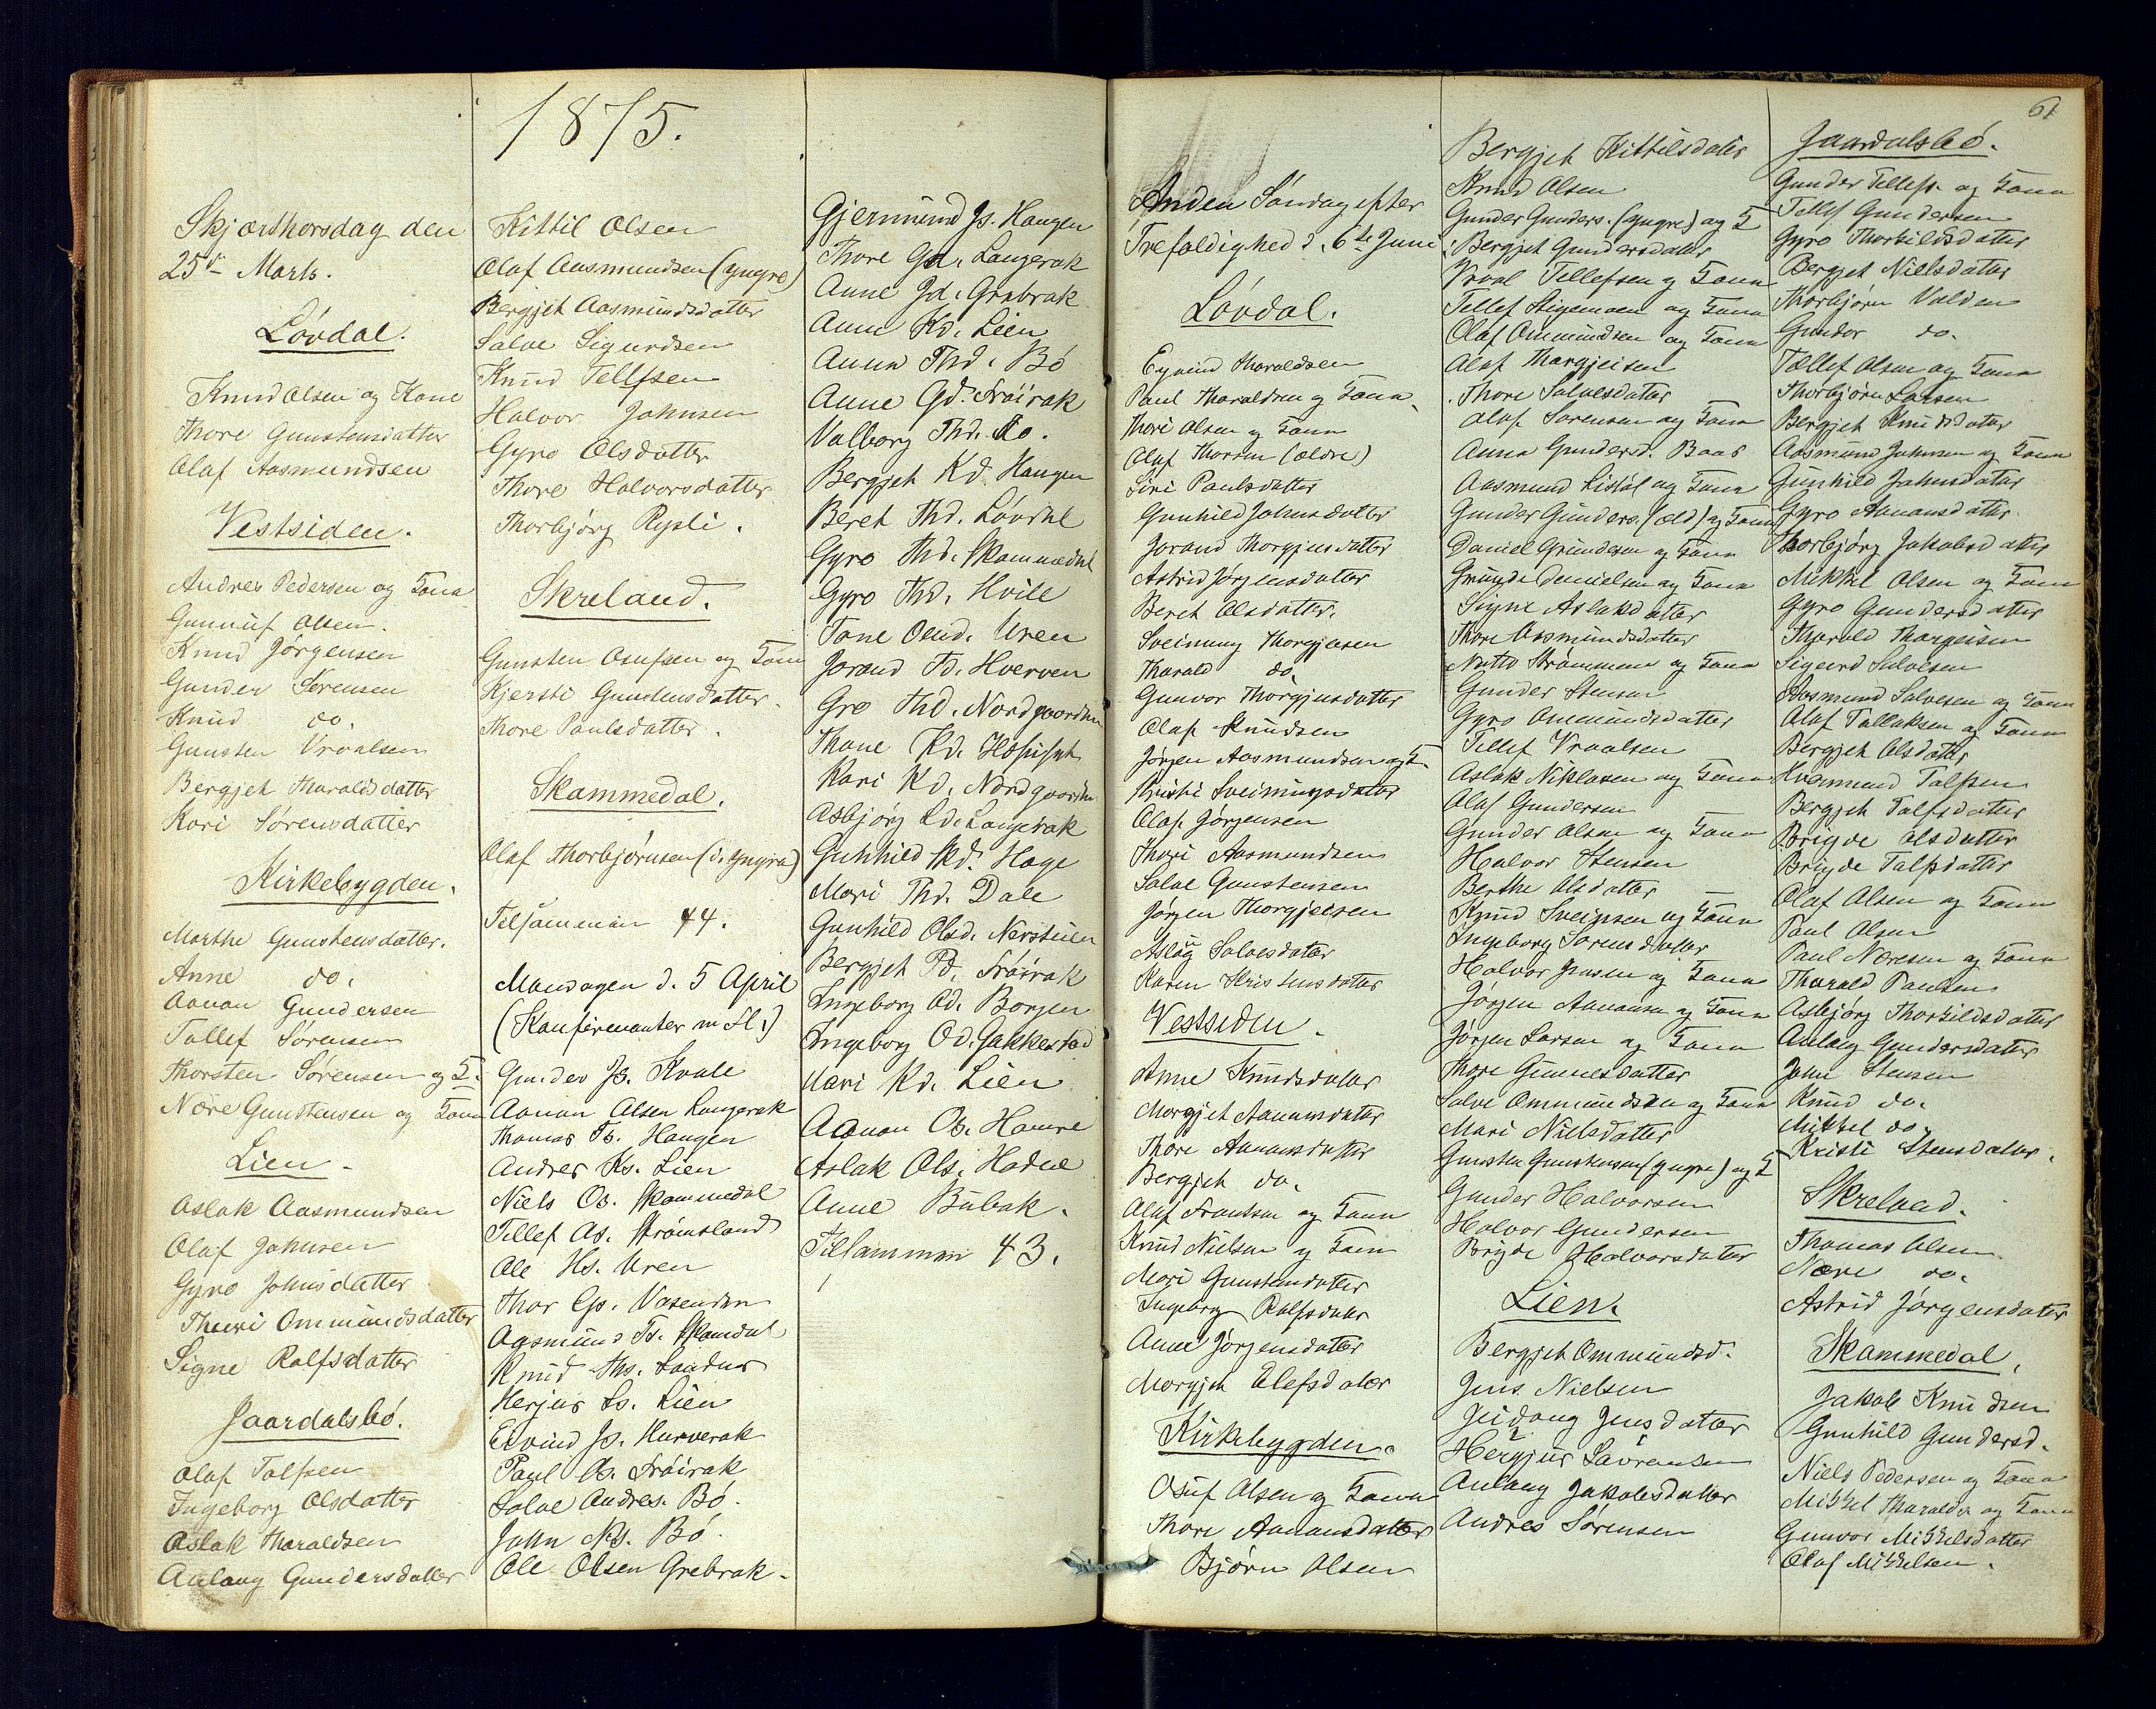 1875.
Skjærthorsdag den
25de Marts.
Lövdal.
Knud Olsen og Kone
Thore Gunstensdatter
Olaf Aasmundsen
Vestsiden.
Andres Pedersen og Kona
Gunnuf Olsen.
Knud Jørgensen
Gunder Sørensen
Knud do.
Gunsten Vraalsen
Bergjet Tharaldsdatter
Kari Sørensdatter
Kirkebygden.
Marthe Gunstensdatter.
Anne do.
Aanan Gundersen
Tallef Sørensen
Thorsten Sørensen og K.
Nære Gunstensen og Kona
Lien.
Aslak Aasmundsen
Olaf Johnsen
Gyro Johnsdatter
Ommundsdatter
Signe Rolfsdatter
Jaardalsbö.
Olaf Talfsen
Ingeborg Olsdatter
Aslak Tharaldsen
Aulaug Gundersdatter
Kittil Olsen
Olaf Aasmundsen (yngre)
Bergjet Aasmundsdatter
Salve Sigurdsen
Knud Tellfsen
Halvor Johnsen
Gyro Olsdatter
Thore Halvorsdatter
Thorbjörg Rysli.
Skreland.
Gunsten Osufsen og Kona
Kjersti Gunstensdatter.
Thore Paulsdatter.
Skammedal.
Olaf Thorbjørnsen (d. yngre)
Tilsammen 44.
Mandagen d. 5 April
(Konfirmanter m Fl.)
Gunder Js. Kvale
Aanan Olsen Langerak
Thomas Ts. Haugen
Andres Ks. Lien
Niels Os. Skammedal
Tellef As. Strömsland
Ole Hs. Uren
Thor Gs. Vasenden
Aasmund Ts. Skamdal
Knud Ths. Landnes
Herjus Ls. Lien
Eivind Js. Hurverak
Paul Os. Fröirak
Salve Andres. Bö.
John Ns. Bö.
Ole Olsen Grebrak.
Gjermund Js. Haugen
Thore Gd. Langerak
Anne Jd. Grebrak
Anne Kd. Lien
Anna Thd. Bö
Anne Gd. Fröirak
Valborg Thd. do.
Bergjet Kd. Haugen
Beret Thd. Lövdal
Gyro Thd. Skammedal
Gyro Thd. Hvile
Tone Oend. Uren
Jorand Td. Hverven
Gro Thd. Nordgaarden
Thone Kd.
Kari Kd. Nordgaarden
Asbjörg Ld. Langerak
Gunhild Kd. Hage
Mari Thd. Dale
Gunhild Olsd. Nerstuen
Bergjet Pd. Fröirak
Ingeborg Od. Borgen
Ingeborg Od. Gakkestad
Mari Kd. Lien
Aanan Os. Hamre
Aslak Ols.
Anne Bubak.
Tilsammen 43.
61
Anden Søndag efter
Trefoldighed d. 6te Juni
Lövdal.
Eyvind Tharaldsen
Paul Tharaldsen og Kona
Thore Olsen og Kona
Olaf Thorsen (ældre)
Siri Paulsdatter
Gunhild Johnsdatter
Jorand Thorgjusdatter
Astrid Jørgensdatter
Beret Olsdatter.
Sveinung Thorgjusen
Tharald do.
Gunvor Thorgjusdatter
Olaf Knudsen
Jørgen Aasmundsen og K.
Kristi Sveinungsdatter
Olaf Jørgensen
Thore Aasmundsen
Salve Gunstensen
Jørgen Thorgjusen
Aslaug Salvesdatter
Karen Kristensdatter
Vestsiden.
Anne Knudsdatter
Morgjet Aanansdatter
Thore Aanansdatter
Bergjet do.
Olaf Frantsen og Kona
Knud Nielsen og Kona
Mari Gunstensdatter
Ingeborg Rolfsdatter
Anne Jørgensdatter
Morgjet Olefsdatter
Kirkebygden.
Osuf Olsen og Kona
Thore Aanansdatter
Bjørn Olsen
Bergjet Kittilsdatter
Knud Olsen
Gunder Gunders. (yngre) og K
Bergjet Gundersdatter
Vraal Tellefsen og Kona
Tellef Stigemoen og Kona
Olaf Ommundsen og Kona
Olaf Thorgjeisen
Thore Salvesdatter
Olaf Sørensen og Kona
Anna Gundersd. Baas
Aasmund Listøl og Kona
Gunder Gunders. (æld) og Kona
Daniel Gundersen og Kona
Gunder Danielsen og Kona
Signe Aslaksdatter
Thore Aasmundsdatter
Strömmene og Kona
Gunder Stensen
Gyro Ommundsdatter
Tellef Vraalsen
Aslak Niklasen og Kona
Olaf Gundersen
Gunder Olsen og Kona
Halvor Stensen
Berthe Olsdatter
Knud Sveinsen og Kona
Ingeborg Sørensdatter
Halvor Jensen og Kona
Jørgen Aanansen og Kona
Jørgen Larsen og Kona
Thore Gunnesdatter
Salve Ommundsen og Kona
Mari Nielsdatter
Gunsten Gunstensen (yngre) og K
Gunder Halvorsen
Halvor Gundersen
Brigde Halvorsdatter
Lien.
Bergjet Ommundsd.
Jens Nielsen
Jensdatter
Hergjus Lavransen
Aulaug Jakobsdatter
Andres Sørensen
Jaardalsbö.
Gunder Tellefs. og Kona
Tellef Gundersen
Gyro Thorkildsdatter
Bergjet Nielsdatter
Thorbjörn Valden
Gunder do.
Tallef Olsen og Kona
Thorbjørn Larsen
Bergjet Knudsdatter
Aasmund Johnsen og Kona
Gunhild Johnsdatter
Gyro Aanansdatter
Thorbjörg Jakobsdatter
Mikkel Olsen og Kona
Gyro Gundersdatter
Tharald Thorgeisen
Sigurd Salvesen
Aasmund Salvesen og Kona
Olaf Tallaksen og Kona
Bergjet Olsdatter
Talfsen
Bergjet Talfsdatter
Brigde Olsdatter
Brigde Talfsdatter
Olaf Olsen og Kona
Paul Olsen
Paul Næresen og Kona
Tharald Paulsen
Asbjörg Thorkildsdatter
Aulaug Gundersdatter
John Stensen
Knud do.
Mikkel do.
Kristi Stensdatter.
Skreland.
Thomas Olsen
Nære do.
Astrid Jørgensdatter
Skammedal.
Jakob Knudsen
Gunhild Gundersd.
Niels Pedersen og Kona
Mikkel Tharalds. og Kona
Gunvor Mikkelsdatter
Olaf Mikkelsen.